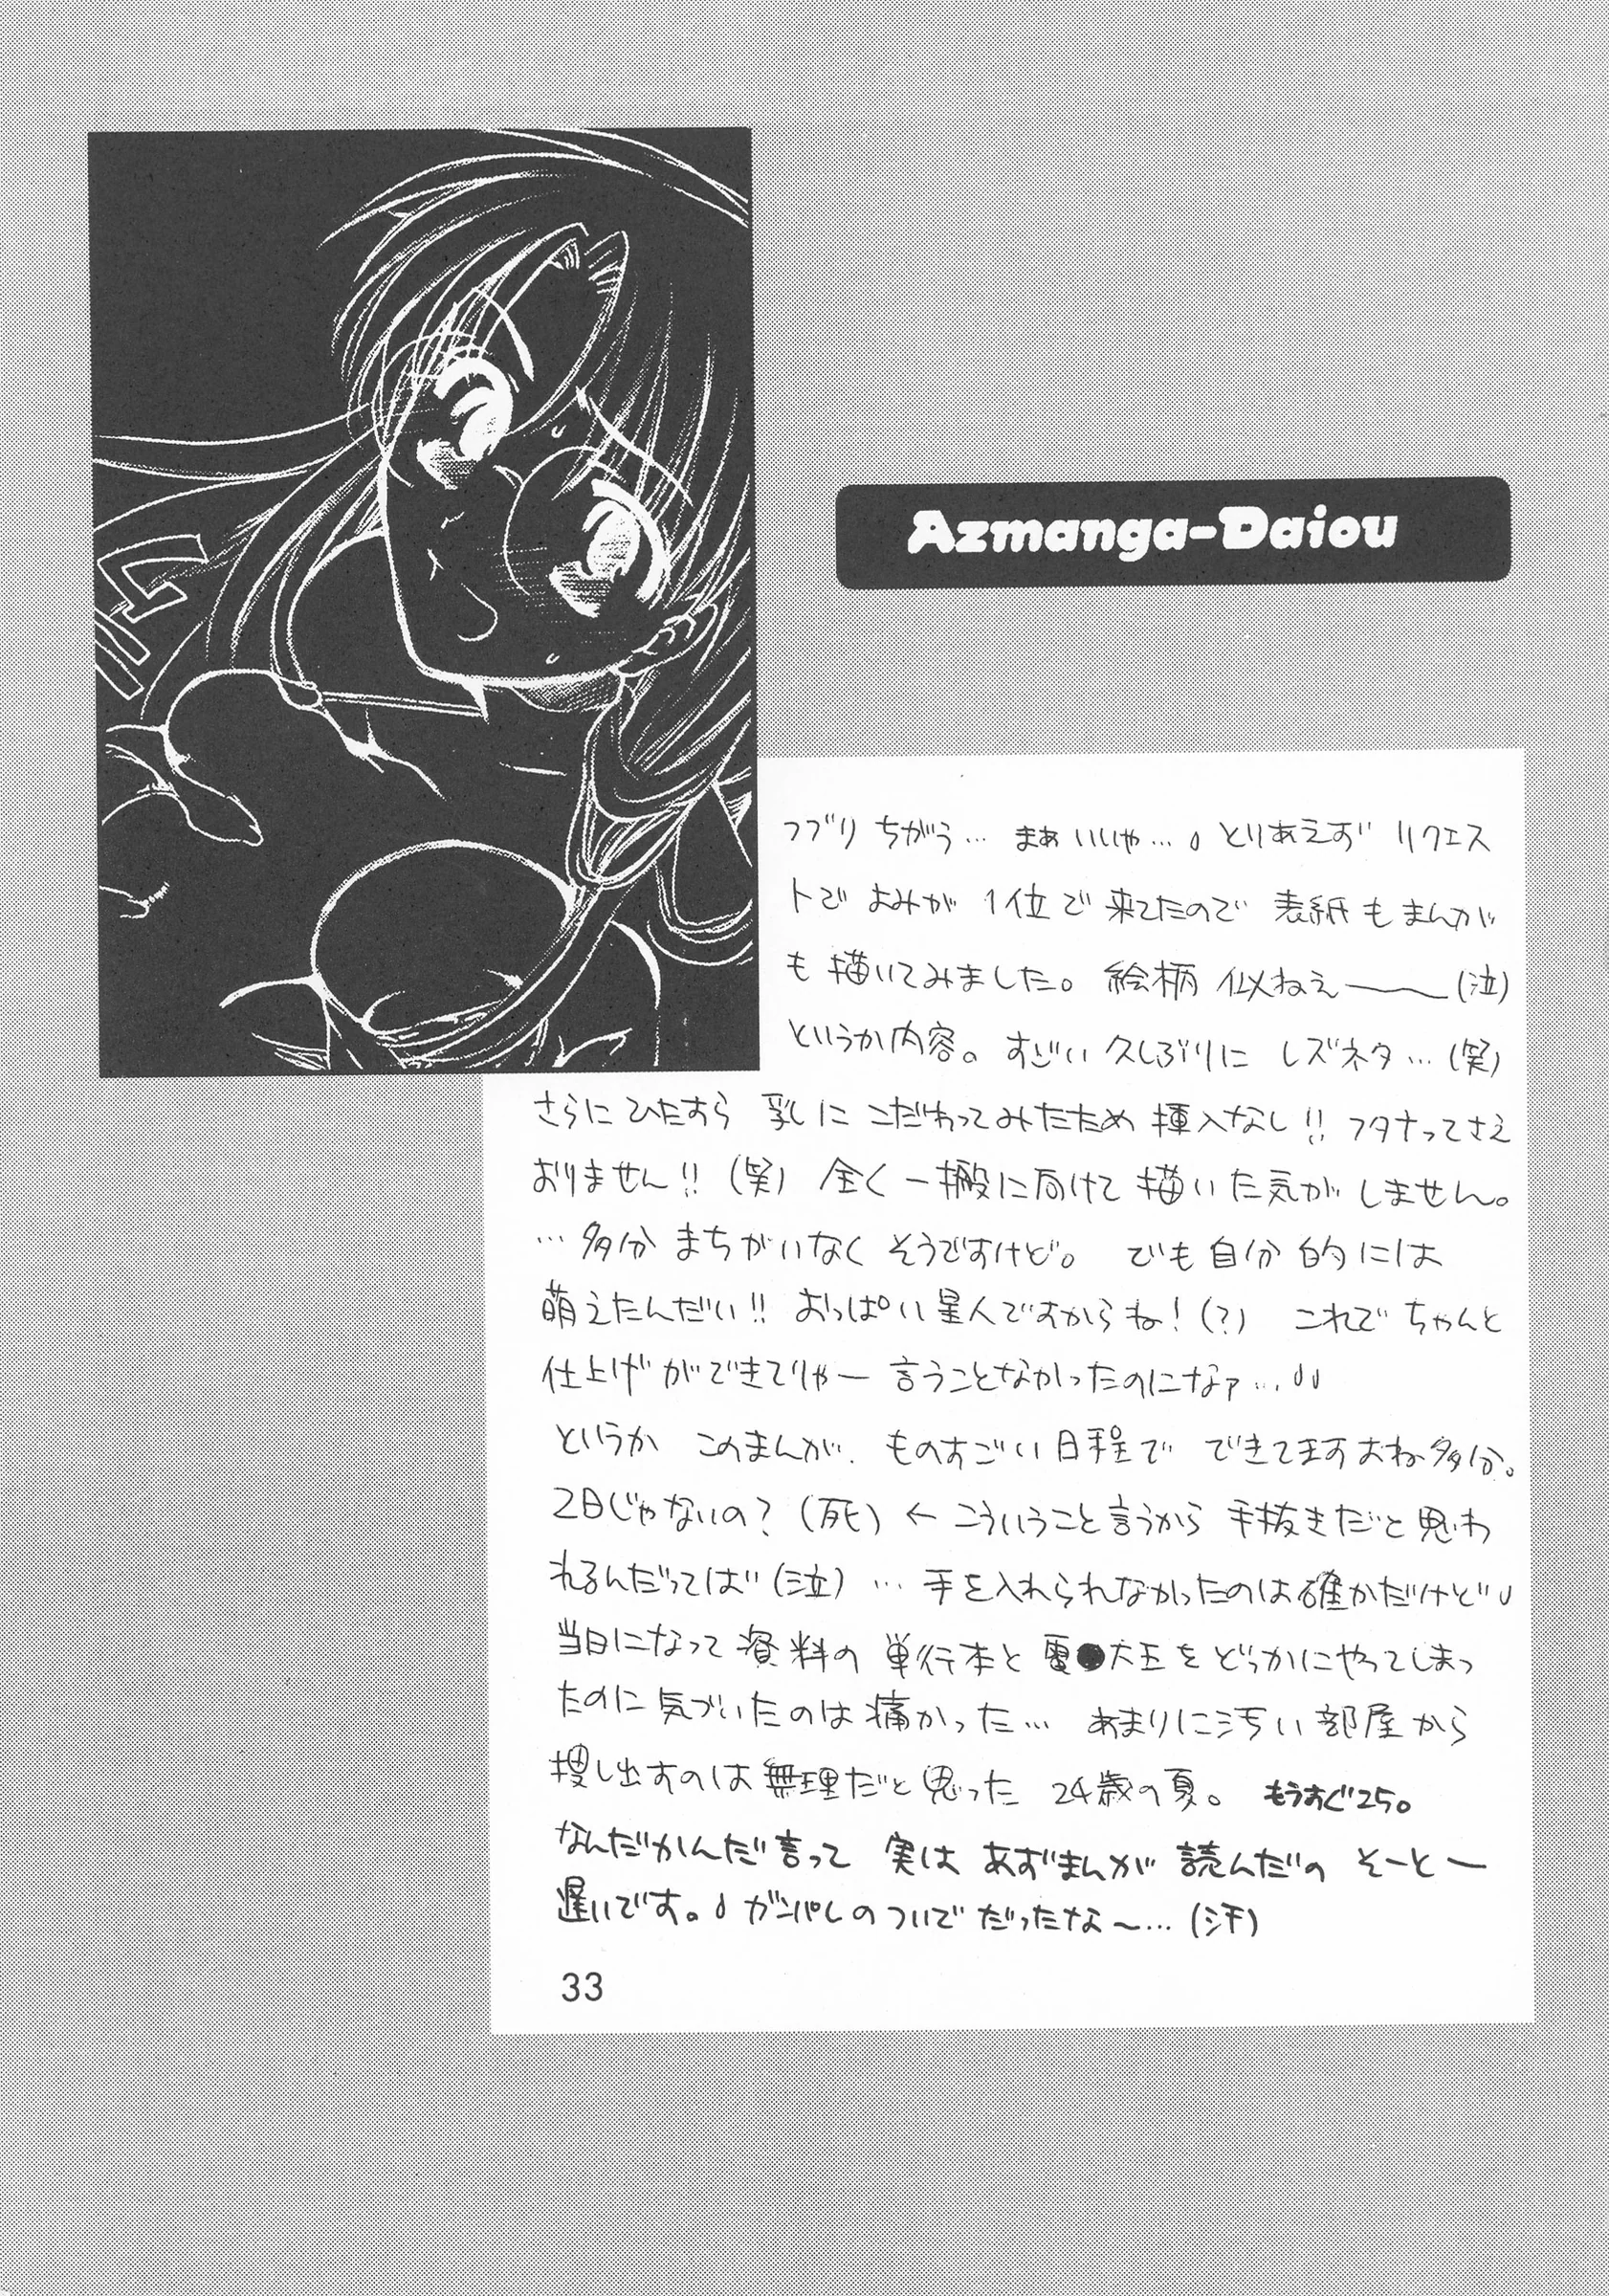 Azmanga-Daiou
つづり ちがう… まぁいいや…。とりあえず リクエス
トで よみが 1位で来てたので 表紙もまんが
も描いてみました。絵柄 似ねぇ――～(泣)
というか内容。すごい久しぶりに レズネタ…(笑)
さらに ひたすら 乳に こだわってみたため 挿入なし!! フタナってさえ
おりません!! (笑) 全く 一搬に向けて 描いた気が しません。
…多分 まちがいなく そうですけど。 でも 自分的には
萌えたんだい!! おっぱい星人ですからね!(?) これで ちゃんと
仕上げが できてりゃー 言うことなかったのになァ…
というか このまんが、ものすごい日程で できてますよね多分。
2日じゃないの?(死) ← こういうこと言うから 手抜きだと思わ
れるんだってば(泣) … 手を入れられなかったのは確かだけど
当日になって 資料の 単行本と 電●大王を どっかにやってしまっ
たのに気づいたのは痛かった… あまりに汚い部屋から
捜し出すのは無理だと思った 24歳の夏。 もうすぐ25。
なんだかんだ言って 実は あずまんが 読んだの そーとー
遅いです。ガンパレの ついで だったな～…(汗)
33